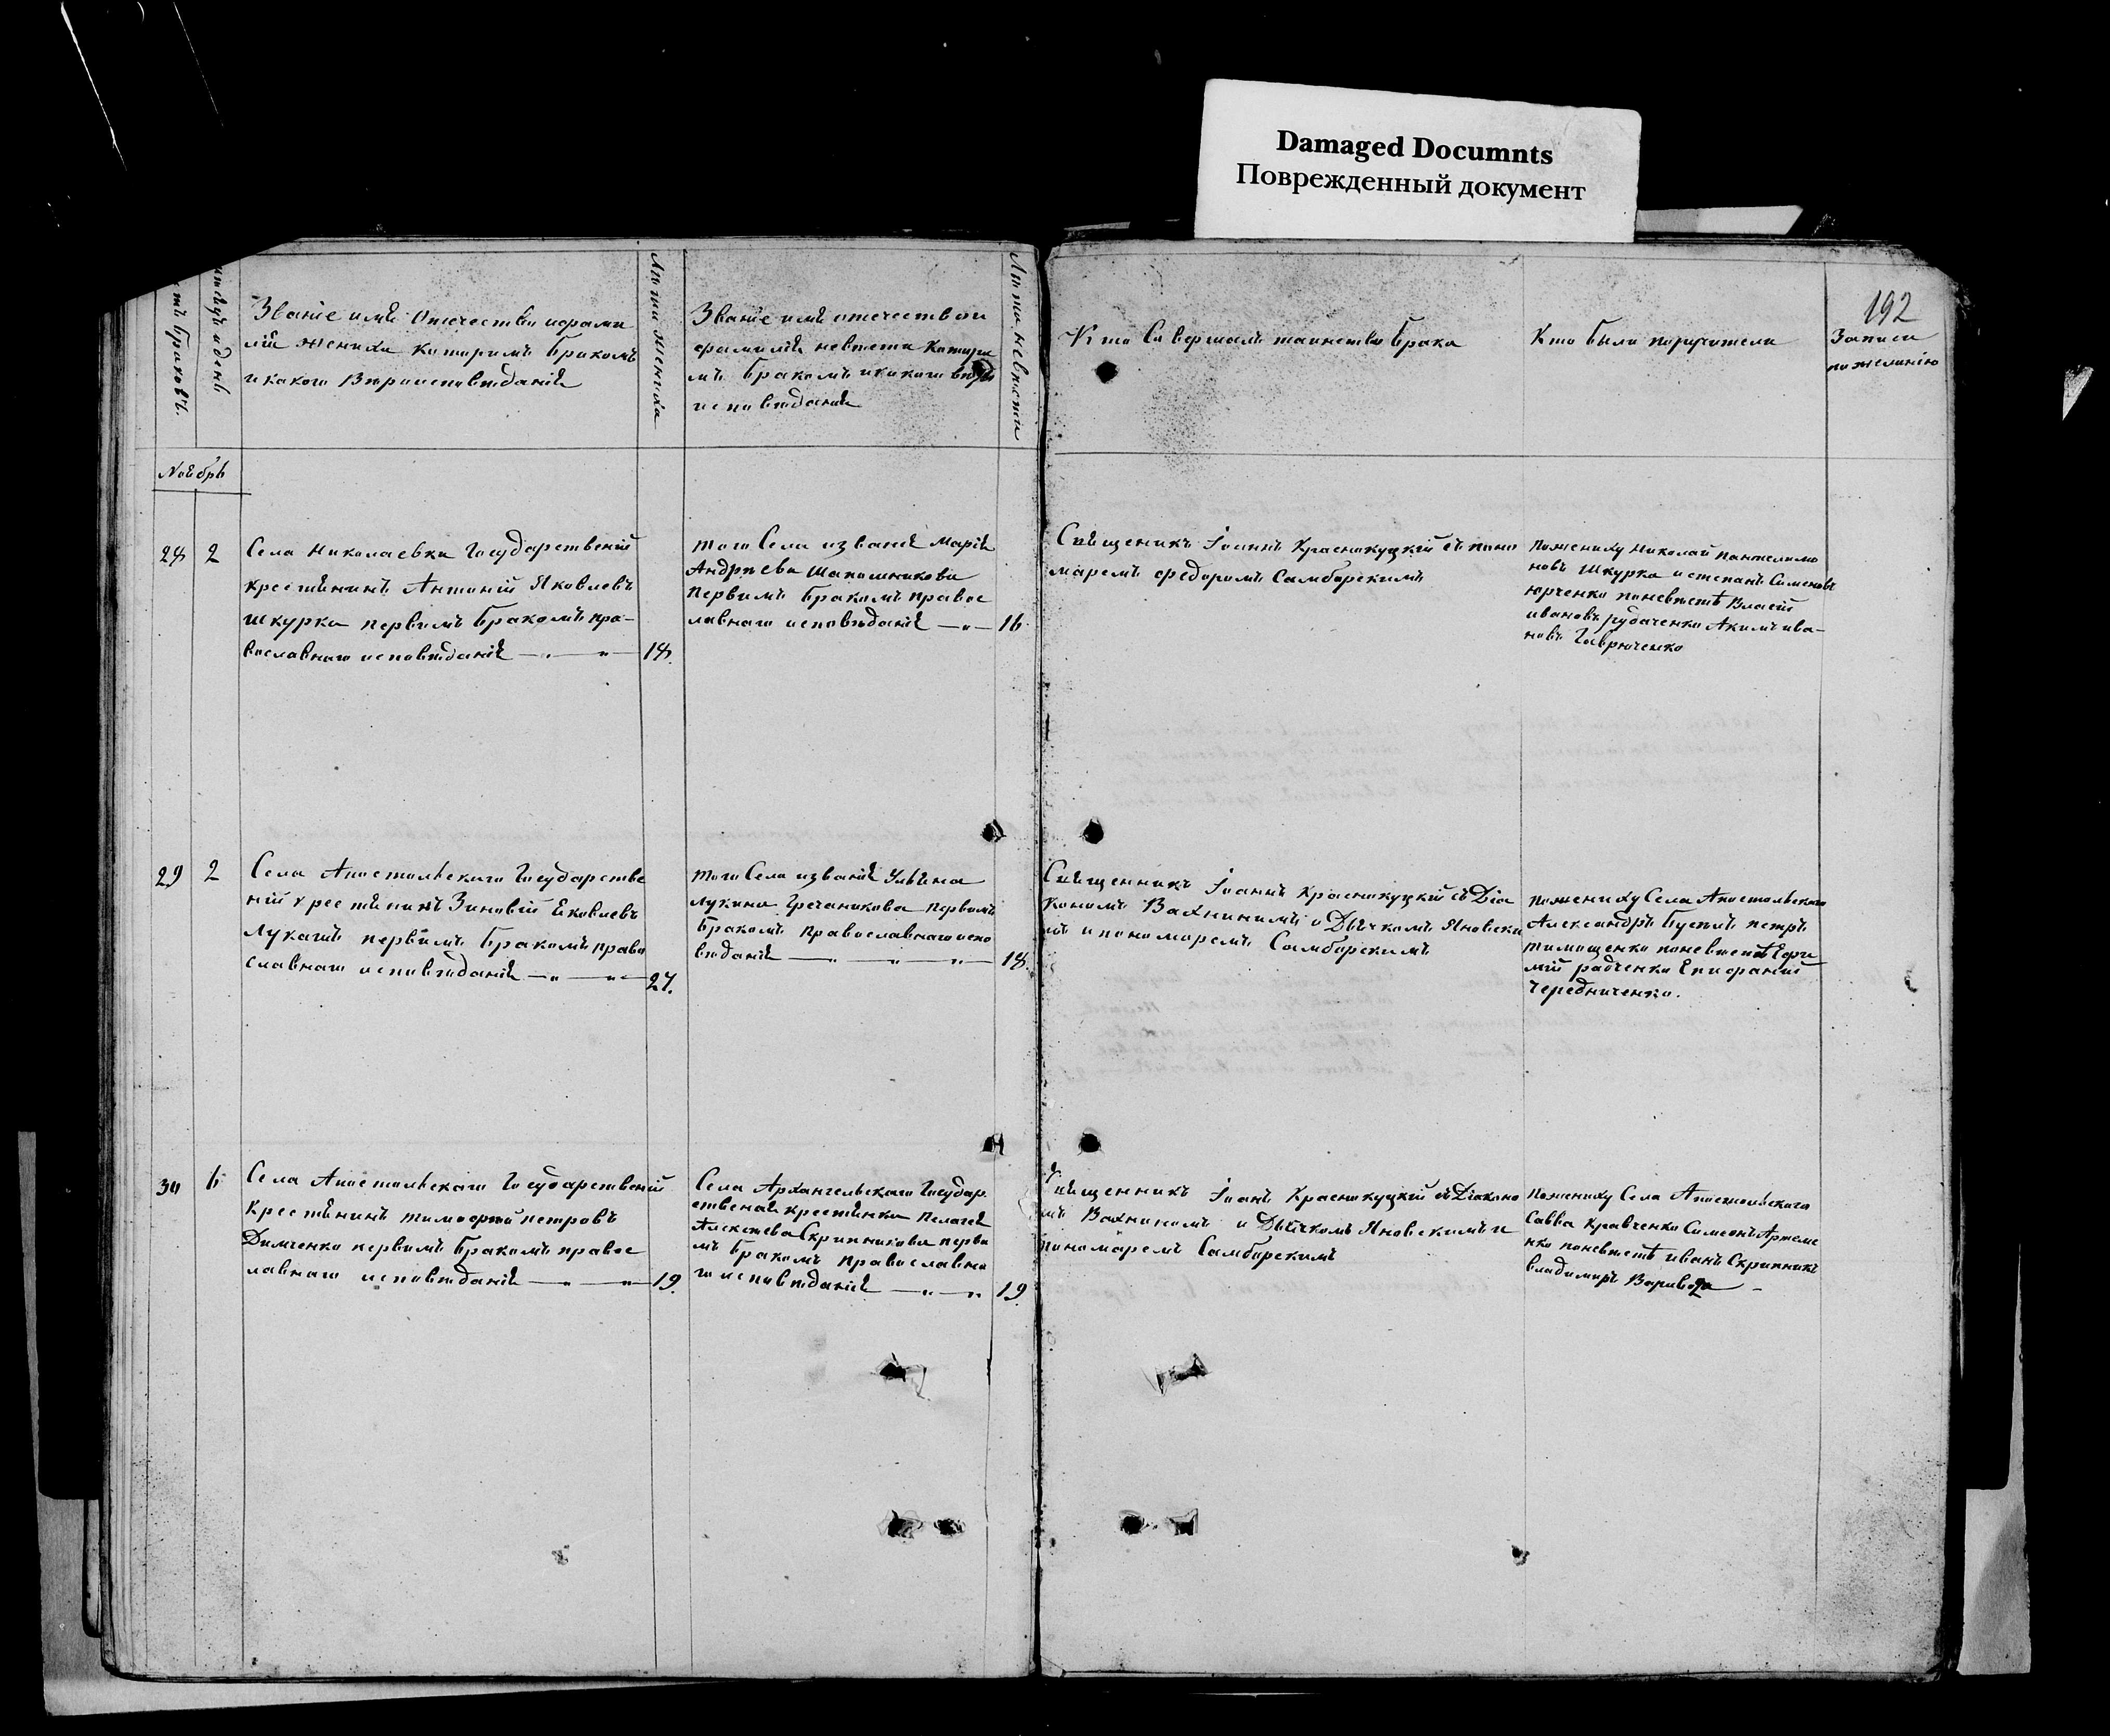 Damaged Documnts
Поврежденный документ
192
тъ браковъ.
мѣсяцъ и день
Званіе имя Отчество и фами
лія жениха которимъ бракомъ
и какого Вѣроисповѣданія
Лѣта жениха
Званіе имя отечество и
фамилія невѣсти Котори
мъ бракомъ и какого вѣро
исповѣданія
Лѣта невѣсти
Кто Совершалъ таинство брака
Кто были поручители
Записи
по желанію
Ноябрь
28
2
Села Николаевки Государственій
крестянинъ Антоній Яковлевъ
Шкурка первимъ бракомъ пра-
вославнаго исповѣданія — „ — „ —
18.
того Села и званія Марія
Андрѣева Шапошникова
Первимъ бракомъ правос
лавнаго исповѣданія — „ —
16
Священикъ Іоаннъ Краснокуцкій съ поно
маремъ Федоромъ Самборскимъ
По жениху Николай Пантелимо
новъ Шкурка и степанъ Семеновъ
юрченко по невѣстѣ Власій
ивановъ рубаченко Акимъ ива-
новъ Гаврюченко
29
2
Села Апостольского Государстве
ній крестянинъ Зиновій Яковлевъ
Лукашъ первімъ бракомъ право
славнаго исповѣданія — „ — „ —
27.
того Села и званія Ульяна
Лукина Гречаникова Первимъ
бракомъ Православнаго испо
вѣданія — „ — „ — „ —
18.
Священникъ Іоанъ Краснокуцкій съ Діа
кономъ Вахнинимъ и Дьячкомъ Яновски
мъ и пономаремъ Самборскимъ
По жениху Села Апостольского
Александръ Буслъ петръ
тимощенко по невѣстѣ Ефи
мій радченко Епифаній
Чередниченко.
30
6
Села Апостольскаго Государственій
Крестянинъ тимофтій петровъ
Димченко первимъ бракомъ правос
лавнаго исповѣданія — „ — „ —
19.
Села Архангельскаго Государ
ственая крестянка Пелагея
Алексѣева Скрипникова перви
мъ бракомъ Православна
го исповѣданія — „ — „
19.
Священникъ Іоанъ Краснокуцкій съ Діаконо
мъ Вахниномъ и Дьячкомъ Яновскимъ и
пономаремъ Самборскимъ
По жениху Села Апостольского
Савва Кравченко Симеонъ Артеме
нко по невѣстѣ иванъ Скрипникъ
владимиръ Варивода —